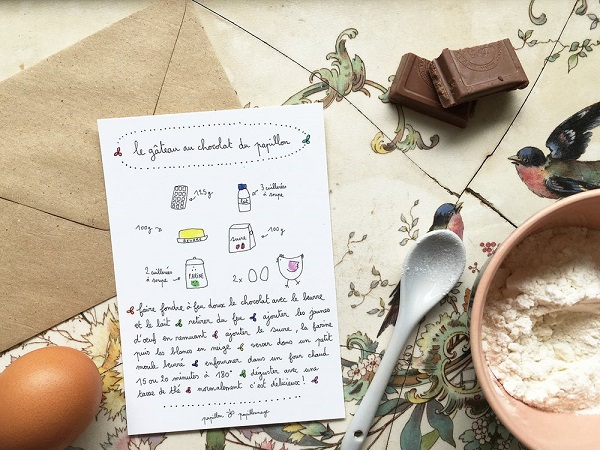 le gâteau au chocolat du papillon
125g
3 cuillerées
à soupe
lait
100g
beurre
sucre
100g
2 cuillerées
à soupe
FARINE
2x
faire fondre à feu doux le chocolat avec le beurre
et le lait retirer du feu ajouter les jaunes
d'œuf en remuant ajouter le sucre, la farine
puis les blancs en neige verser dans un petit
moule beurré enfourner dans un four chaud
15 ou 20 minutes à 180° déguster avec une
tasse de thé normalement c'est délicieux !
papillon papillonnage